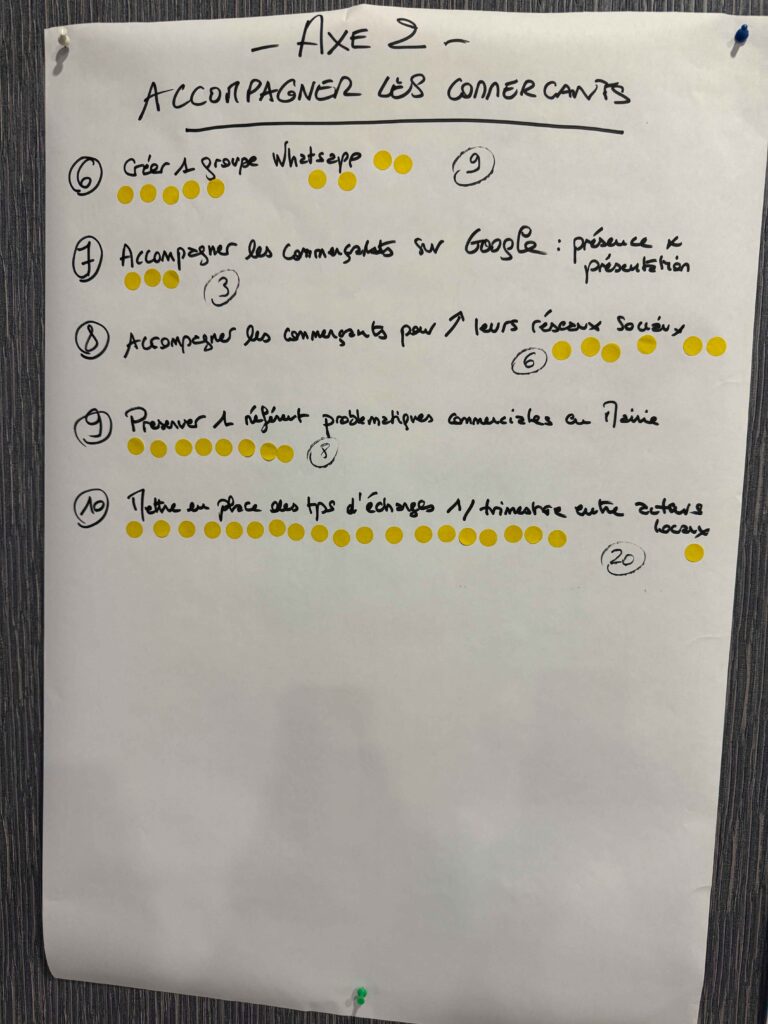 - AXE 2 -
ACCOMPAGNER LES COMMERCANTS
⑥ Créer 1 groupe Whatsapp ⑨
⑦ Accompagner les commerçants sur Google : présence x
présentation
③
⑧ Accompagner les commerçants pour ↗ leurs réseaux sociaux
⑥
⑨ Preserver 1 référent problematiques commerciales en Mairie
⑧
⑩ Mettre en place des tps d'échanges 1/trimestre entre acteurs
locaux
⑳